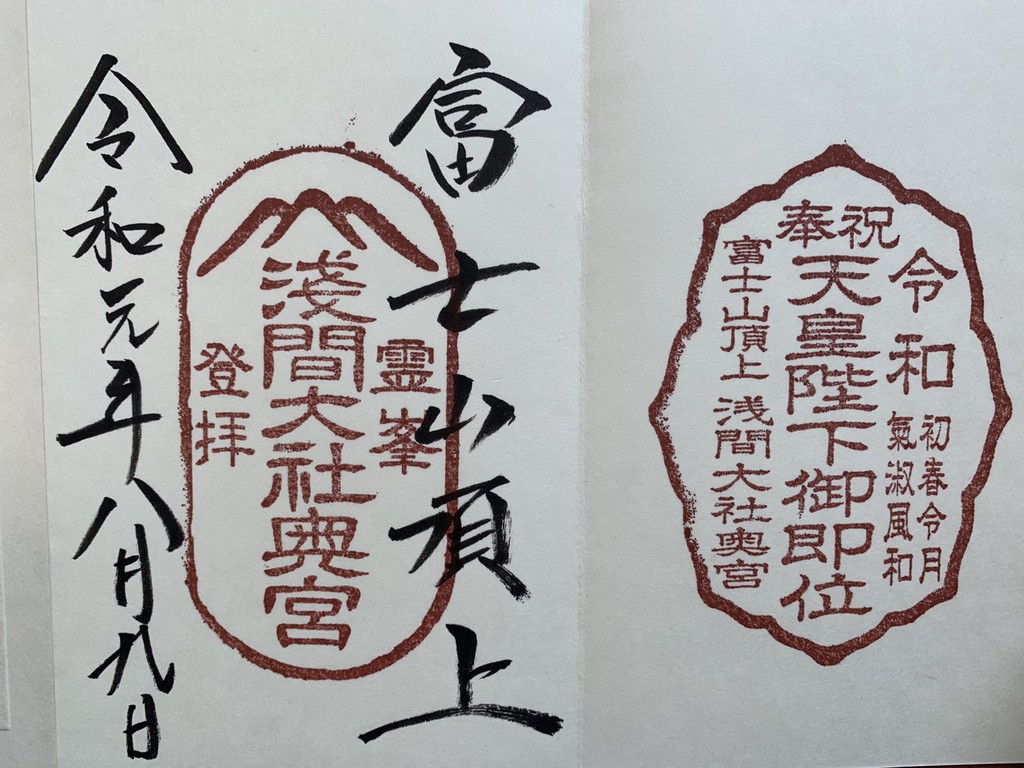 令和
初春令月
氣淑風和
奉祝
天皇陛下御即位
富士山頂上 浅間大社奥宮
富士山頂上
霊峯
淺間大社奥宮
登拝
令和元年八月九日